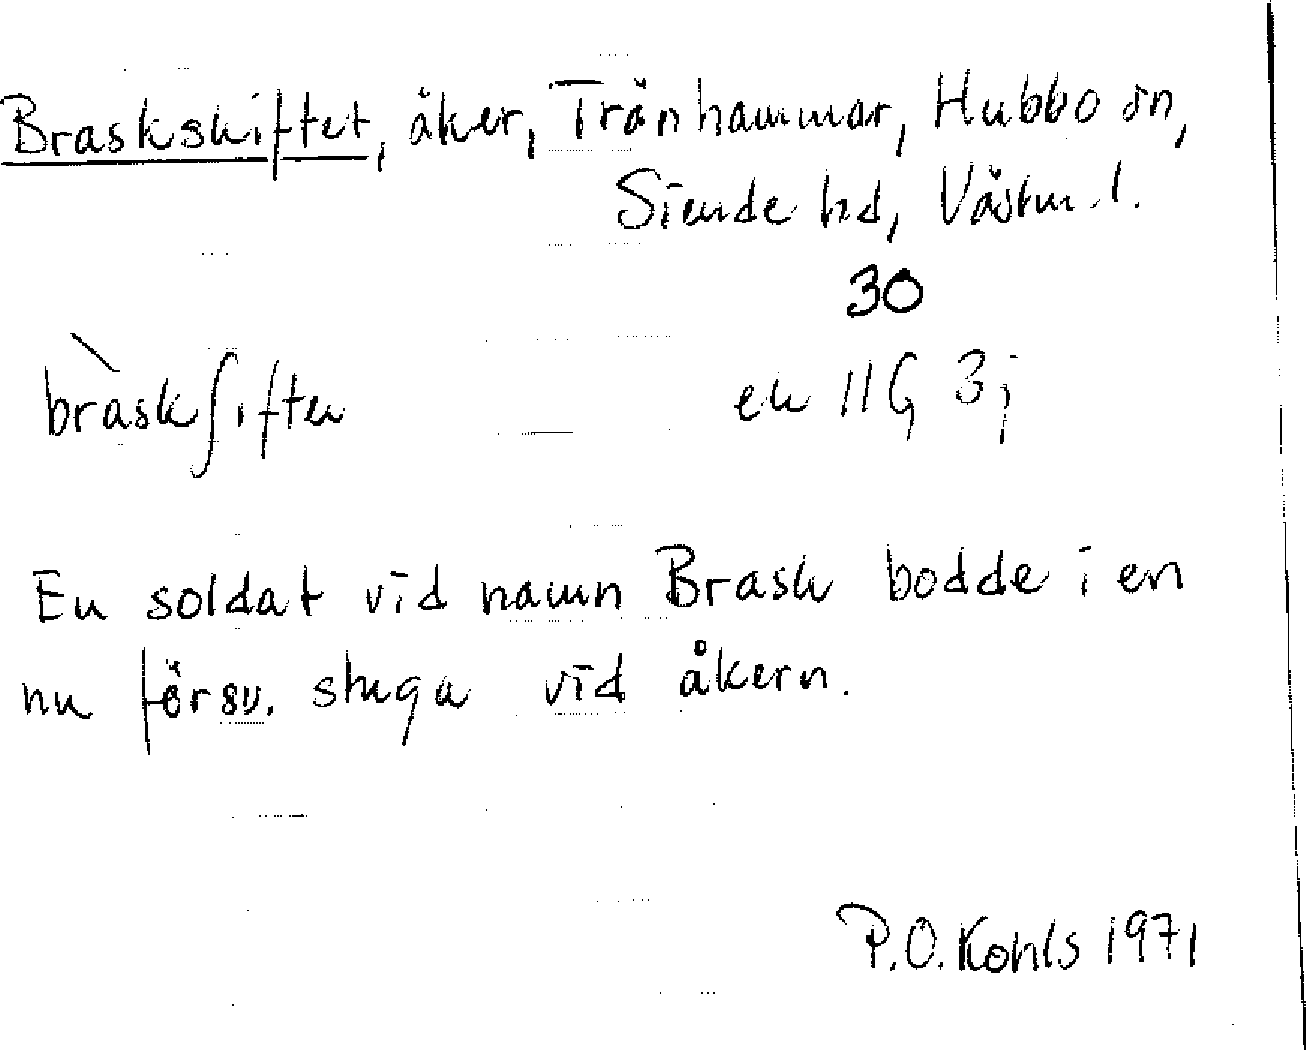 Braskskiftet, åker, Tränhammar, Hubbo sn,
Siende hd, Västm.l.
30
bràskʃiftet ek 11G 3j
En soldat vid namn Brask bodde i en
nu försv. stuga vid åkern.
P.O. Kohls 1971